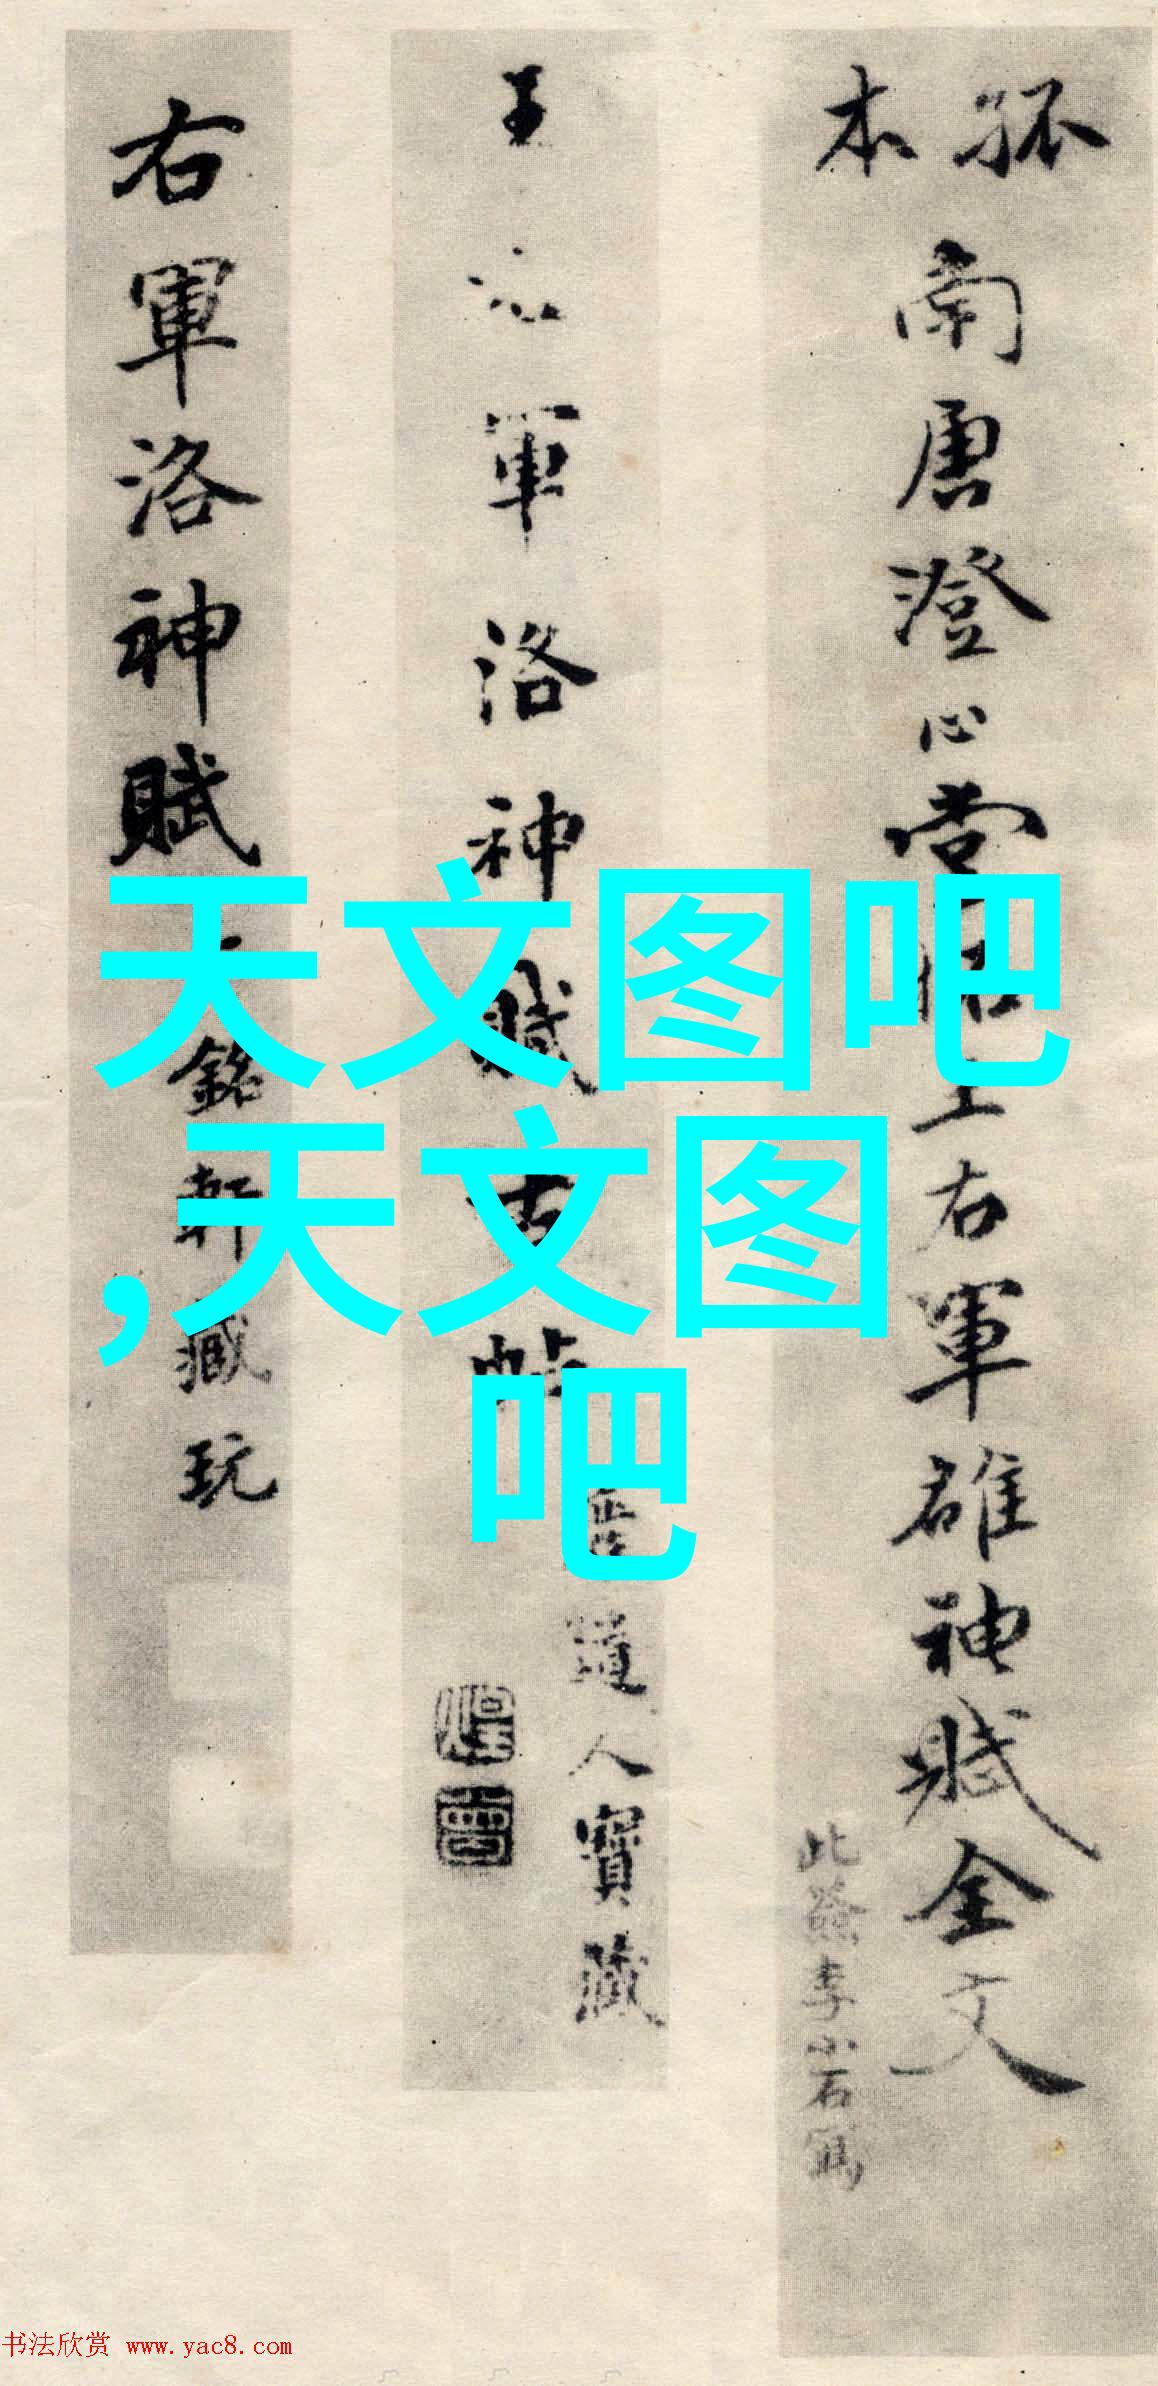 孤本
南唐澄心堂帖王右軍雒神賦全文
此籤李小石寫
王右軍洛神賦古帖
道人寶藏
右軍洛神賦
銘軒藏玩
天文图吧
,天文图
吧
书法欣赏 www.yac8.com